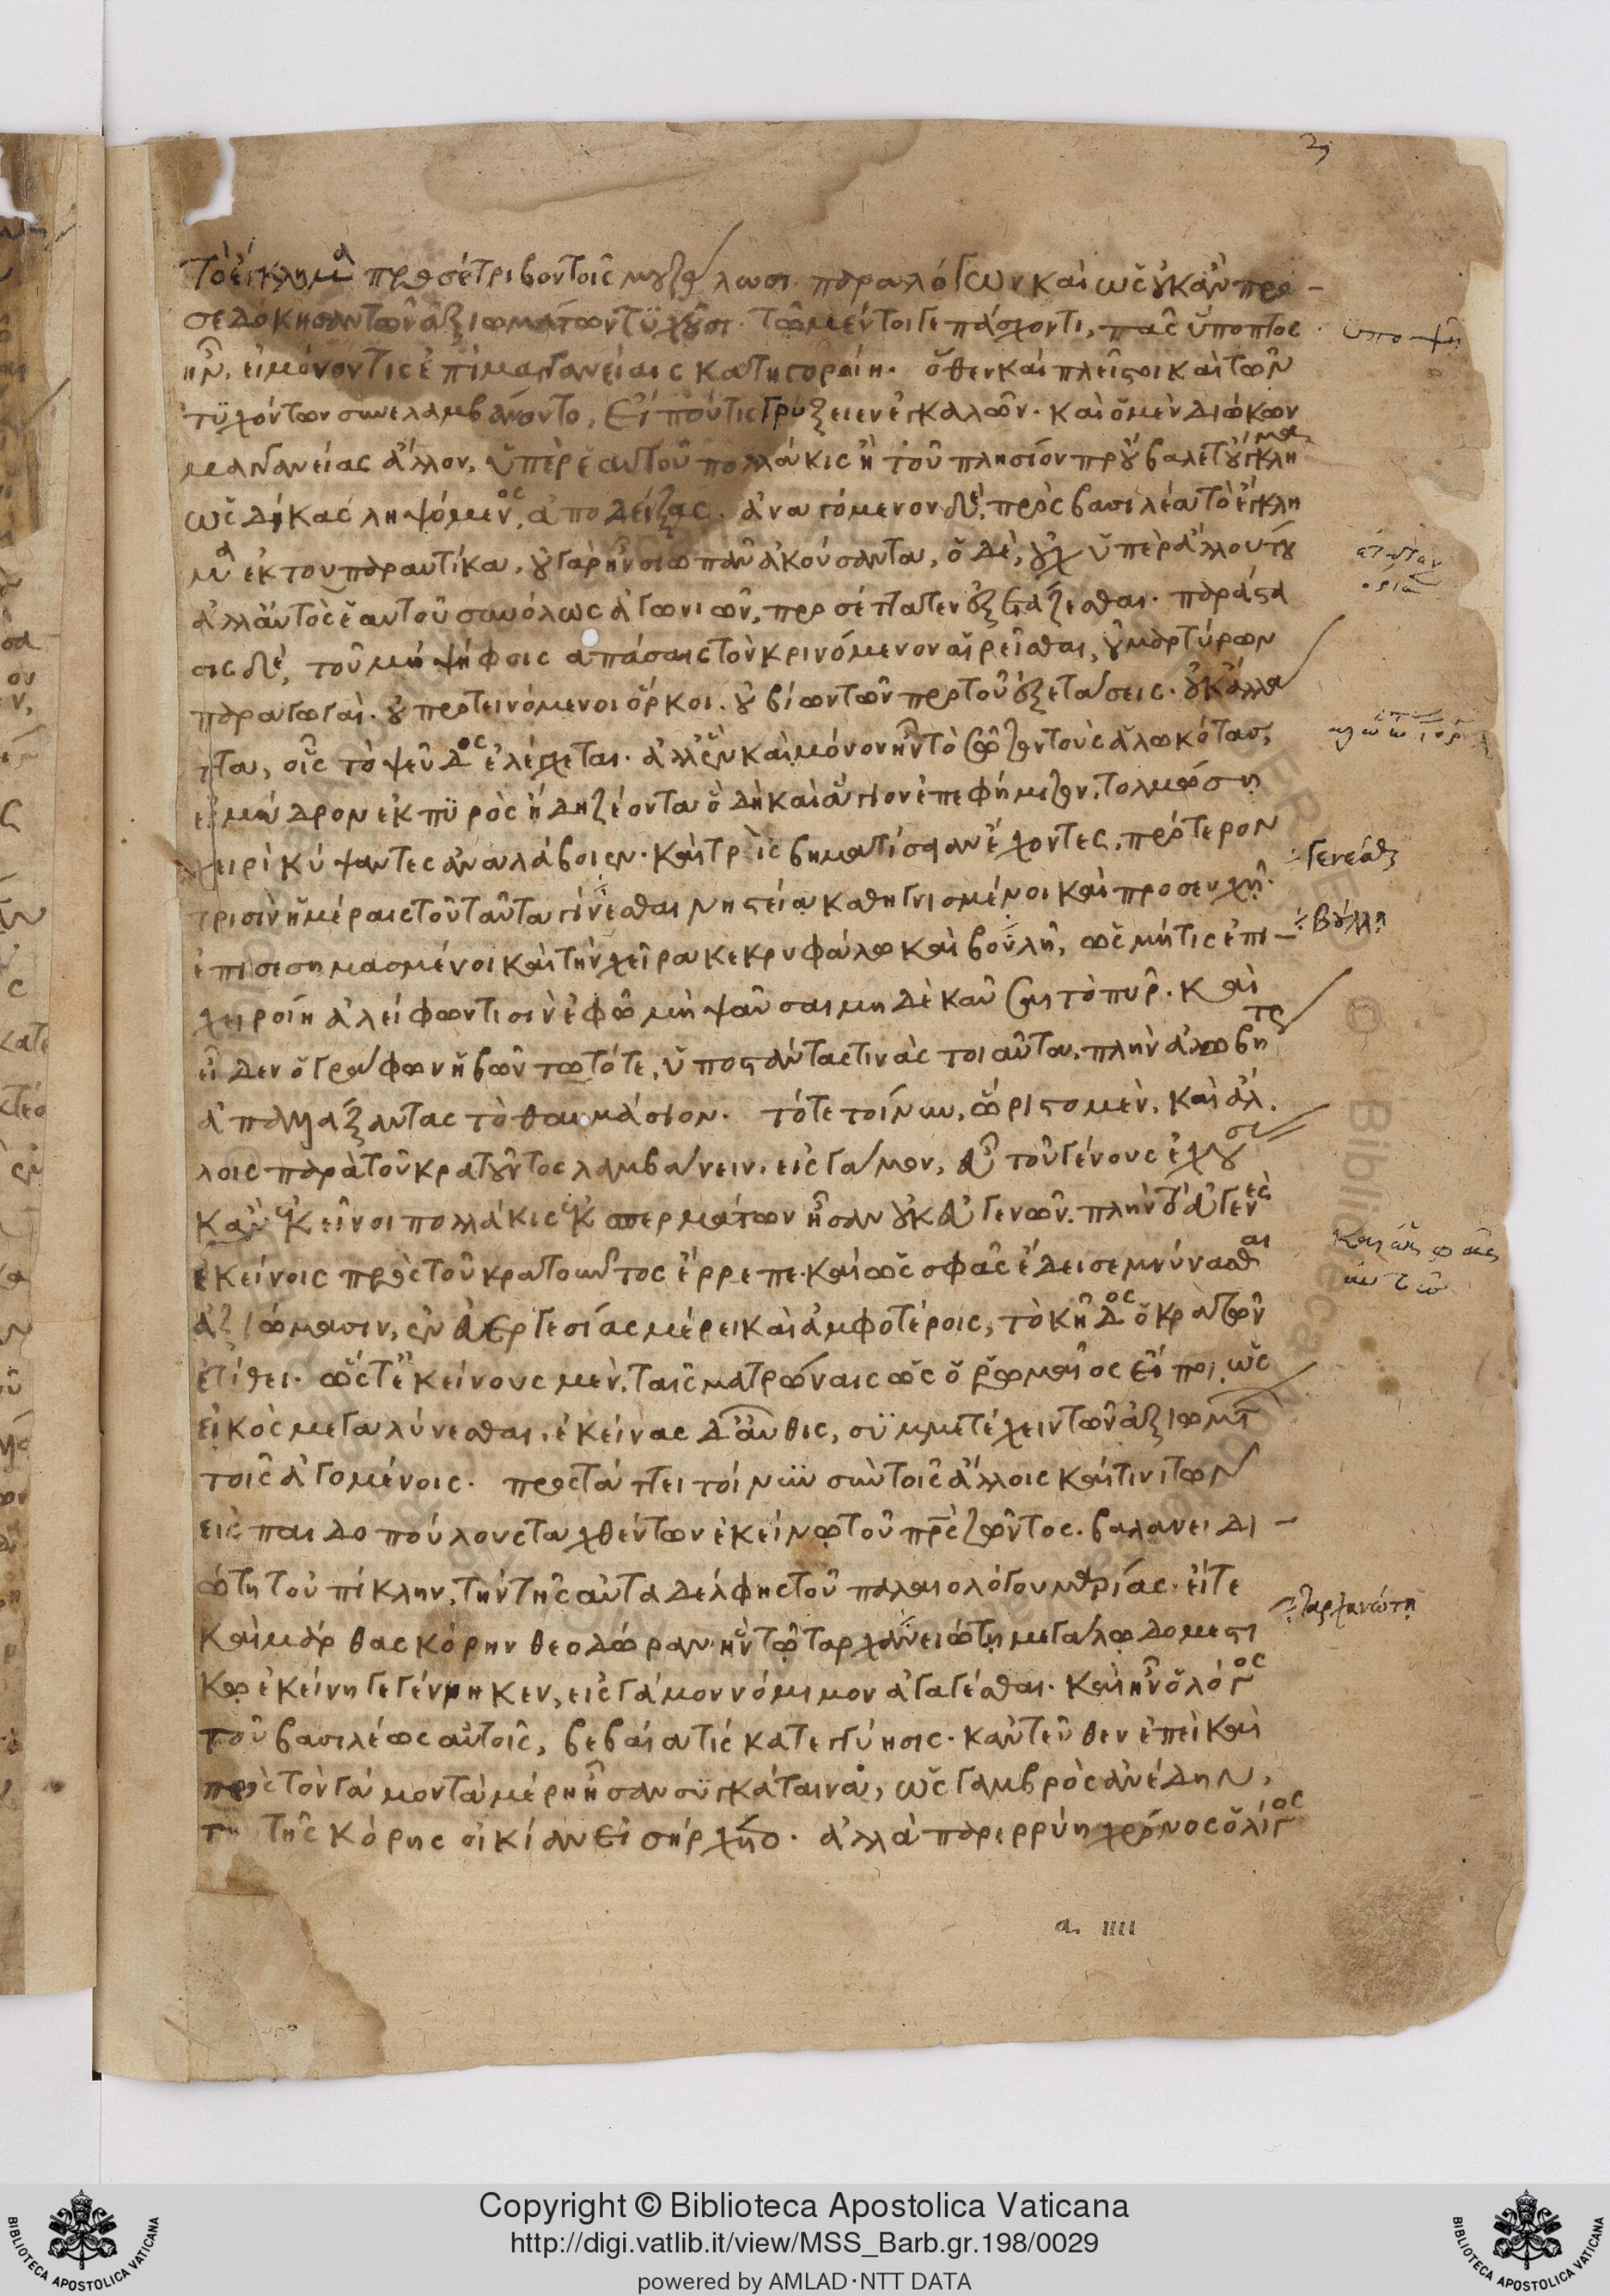 τὸ ἔγκλημα προσέτριβον τοῖς μὴ θέλουσι παραλόγων καὶ ὡς οὐκ ἂν προ-
σεδόκησαν τῶν ἀξιωμάτων τυχοῦσι. τῷ μέντοι γε πάσχοντι, πᾶς ὕποπτος
ἦν, εἰ μόνον τις ἐπὶ μαγγανείαις κατηγοροίη. ὅθεν καὶ πλεῖστοι καὶ τῶν
τυχόντων συνελαμβάνοντο, εἴ πού τις γρύξειεν ἐγκαλῶν. καὶ ὁ μὲν διώκων
μαγγανείας ἄλλον, ὑπὲρ ἑαυτοῦ πολλάκις ἢ τοῦ πλησίον προὐβάλετο ἔγκλημα
ὡς δίκας ληψόμενος, ἀποδείξας. ἀναγόμενον δὲ, πρὸς βασιλέα τὸ ἔγκλη
μα ἐκ του παραυτίκα, οὐ γὰρ ἦν σιωπᾶν ἀκούσαντα, ὁ δὲ, οὐχ ὑπὲρ ἄλλου του
ἀλλ' αὐτὸς ἑαυτοῦ συνόλως ἀγωνιῶν, προσέταττεν ἐξετάζεσθαι. παράστα
σις δὲ, τοῦ μὴ ψήφοις ἁπάσαις τὸν κρινόμενον αἱρεῖσθαι, οὐ μαρτύρων
παραγωγαὶ. οὐ προτεινόμενοι ὅρκοι. οὐ βίων τῶν πρὸ τοῦ ἐξετάσεις. οὐκ ἄλλα
ττα, οἷς τὸ ψεῦδος ἐλέγχεται. ἀλλ' ἓν καὶ μόνον ἦν τὸ σῷζον τοὺς ἑαλωκότας,
εἰ μύδρον ἐκ πυρὸς ἤδη ζέοντα ὃ δὴ καὶ ἅγιον ἐπεφήμιζον, τολμώσῃ
χειρὶ κύψαντες ἀναλάβοιεν. καὶ τρὶς βηματίσαιεν ἔχοντες, πρότερον
τρισὶν ἡμέραις τοῦ ταῦτα γίνεσθαι νηστείᾳ καθηγνισμένοι καὶ προσευχῇ.
ἐπισεσημασμένοι καὶ τὴν χεῖρα κεκρυφάλῳ καὶ βούλλῃ, ὡς μή τις ἐπι-
χειροίη ἀλείφων τισὶν ἐφ' ᾧ μὴ ψαῦσαι μηδὲ καῦσαι τὸ πῦρ. καὶ
εἶδεν ὁ γράφων ἡβῶν τῷ τότε, ὑποστάντας τινὰς τοιαῦτα, πλὴν ἀλωβήτως
ἀπαλλάξαντας τὸ θαυμάσιον. τότε τοίνυν, ὥριστο μὲν, καὶ ἄλ.
λοις παρὰ τοῦ κρατοῦντος λαμβάνειν, εἰς γάμον, εὖ τοῦ γένους ἐχούσας
κἂν ἐκεῖνοι πολλάκις ἐκ σπερμάτων ἦσαν οὐκ εὐγενῶν. πλὴν τὸ εὐγενὲς
ἐκείνοις πρὸς τοῦ κρατοῦντος ἔρρεπε. καὶ ὡς σφᾶς ἔδει σεμνύνεσθαι
ἀξιώμασιν, ἐν εὐεργεσίας μέρει καὶ ἀμφοτέροις, τὸ κῆδος ὁ κρατῶν
ἐτίθει. ὥστε κείνους μὲν, ταῖς ματρώναις ὡς ὁ Ῥωμαῖος εἴποι, ὡς
εἰκὸς μεγαλύνεσθαι. ἐκείνας δ' αὖθις, συμμετέχειν τῶν ἀξιωμάτων
τοῖς ἀγομένοις. προστάττει τοίνυν σὺν τοῖς ἄλλοις καί τινι τῶν
εἰς παιδοπούλους ταχθέντων ἐκείνῳ τοῦ πρὸς ζῶντος. βαλανειδι-
ώτῃ τοὐπίκλην, τὴν τῆς αὐταδέλφης τοῦ παλαιολόγου μαρίας, εἴτε
καὶ μάρθας κόρην θεοδώραν, ἣν τῷ ταρχανειώτῃ μεγάλῳ δομεστί
κῳ ἐκείνη γεγέννηκεν, εἰς γάμον νόμιμον ἀγαγέσθαι. καὶ ἦν ὁ λόγος
τοῦ βασιλέως αὐτοῖς, βεβαία τις κατεγγύησις. κἀντεῦθεν ἐπεὶ καὶ
πρὸς τὸν γάμον τὰ μέρη ἦσαν συγκάταινα, ὡς γαμβρὸς ἀνέδην,
τὴν τῆς κόρης οἰκίαν εἰσήρχετο. ἀλλὰ παρερρύη χρόνος ὀλίγος
Γενέσθαι
βούλλῃ
Ταρχανιώτῃ
a. iiii
Copyright © Biblioteca Apostolica Vaticana
http://digi.vatlib.it/view/MSS_Barb.gr.198/0029
powered by AMLAD·NTT DATA
BIBLIOTECA APOSTOLICA VATICANA
BIBLIOTECA APOSTOLICA VATICANA